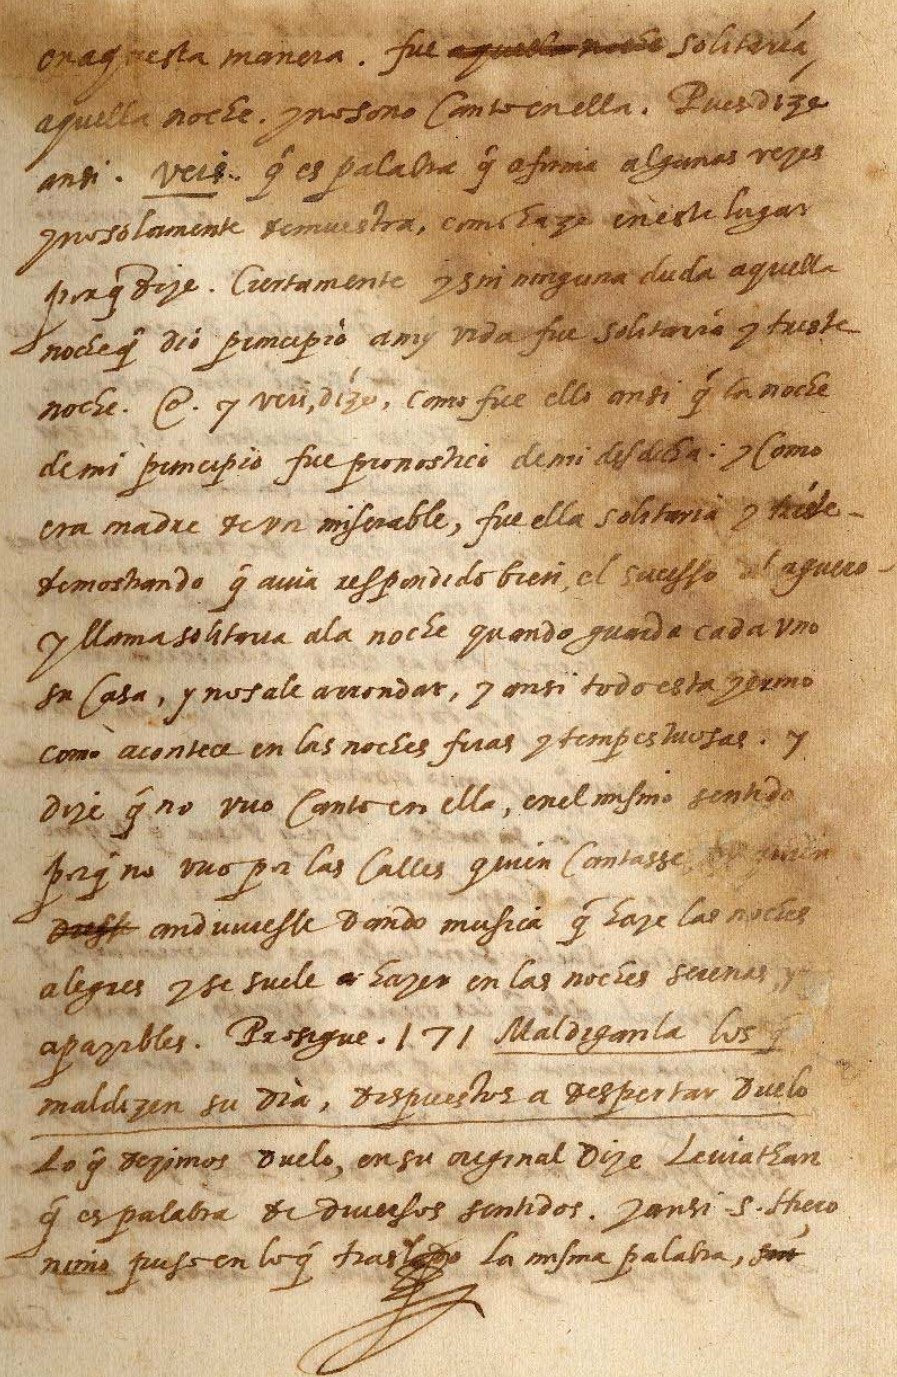 en aquesta manera. fue aquella noche solitaria,
aquella noche. y no sono Canto en ella. Pues dize
ansi. veis. q̃ es palabra q̃ afirma algunas vezes
y no solamente demuestra, como haze en este lugar
porq̃ dize. Ciertamente y sin ninguna duda aquella
noche q̃ dió principio a my vida fue solitaria y triste
noche. @. y veis, dize, como fue ello ansi q̃ la noche
de mi principio fue pronostico de mi desdicha: y Como
era madre de vn miserable, fue ella solitaria y triste
demostrando q̃ auia respondido bien el sucesso al aguero
y llama solitaria a la noche quando guarda cada vno
su Casa, y no sale a rrondar, y ansi todo esta yermo
como acontece en las noches feras y tempestuosas. y
dize q̃ no vuo Canto en ella, en el mismo sentido
porq̃ no vuo por las Calles quien Cantasse, quien
anduuiesse dando musica q̃ haze las noches
alegres y se suele hazer en las noches serenas, y
apazibles. Prosigue. 171 Maldiganla los q̃
maldizen su dia, dispuestos a despertar duelo
Lo q̃ dezimos duelo, en su original dize Leuiathan
q̃ es palabra de diuersos sentidos. y ansi S. Hiero
nimo puso en lo q̃ traslado la misma palabra, sin